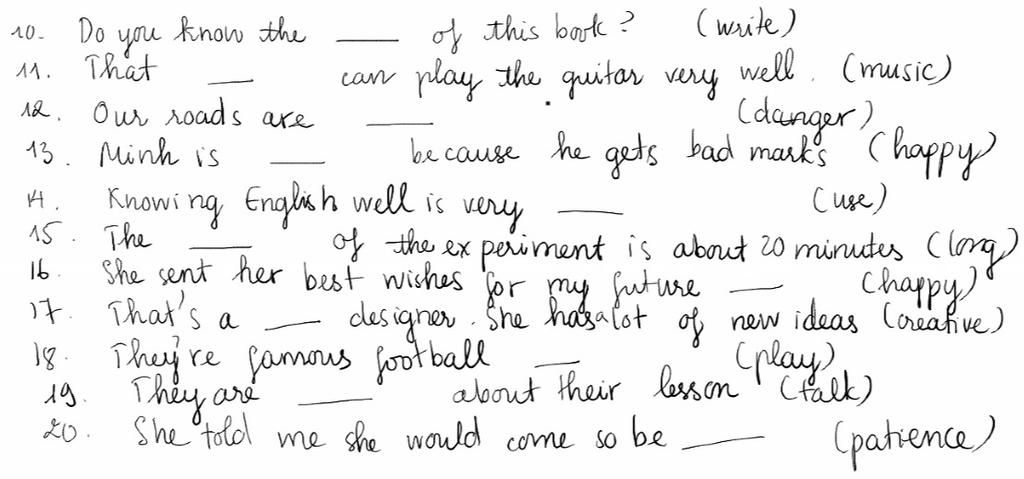 10. Do you know the ____ of this book? (write)
11. That ____ can play the guitar very well. (music)
12. Our roads are ____ (danger)
13. Minh is ____ because he gets bad marks (happy)
14. Knowing English well is very ____ (use)
15. The ____ of the experiment is about 20 minutes (long)
16. She sent her best wishes for my future ____ (happy)
17. That's a ____ designer. She has a lot of new ideas (creative)
18. They're famous football ____ (play)
19. They are ____ about their lesson (talk)
20. She told me she would come so be ____ (patience)